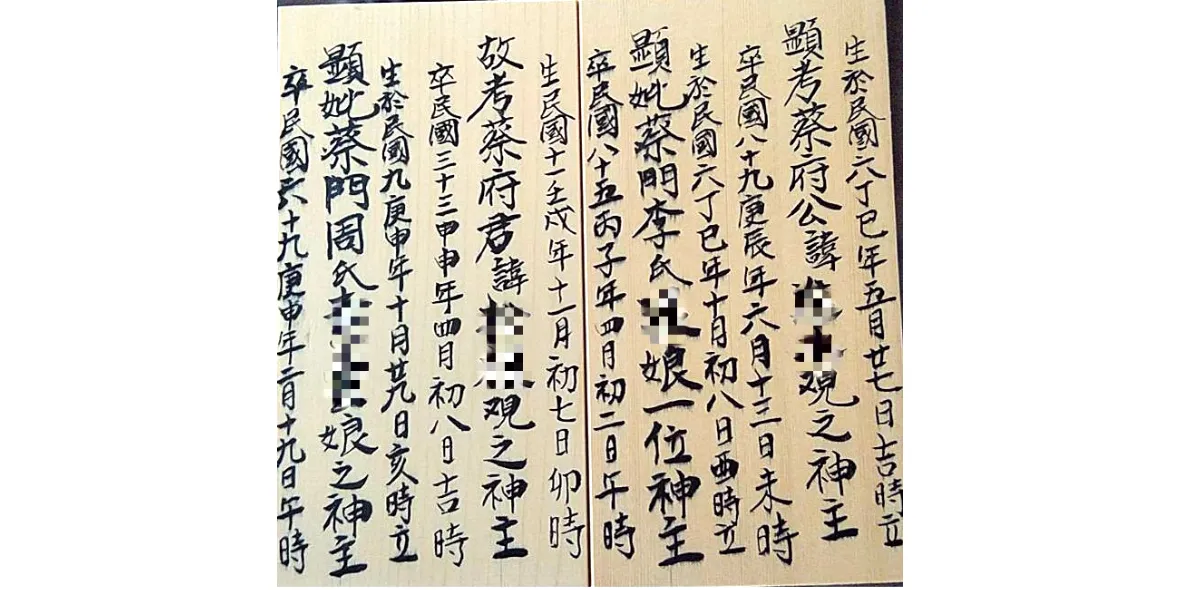 生於民國六丁巳年五月廿七日吉時立
顯考蔡府公諱觀之神主
卒民國八十九庚辰年六月十三日未時
生於民國六丁巳年十月初八日酉時立
顯妣蔡門李氏娘一位神主
卒民國八十五丙子年四月初二日午時
生民國十一壬戌年十一月初七日卯時
故考蔡府君諱觀之神主
卒民國三十三甲申年四月初八日吉時
生於民國九庚申年十月廿九日亥時立
顯妣蔡門周氏娘之神主
卒民國六十九庚申年二月十九日午時